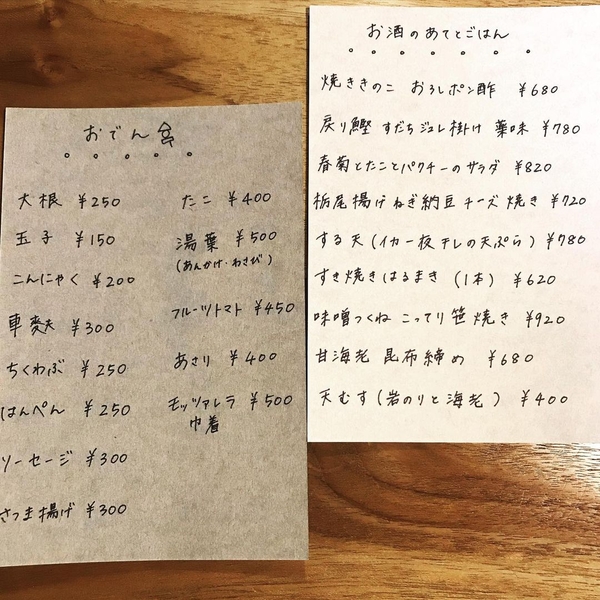 おでん
大根 ¥250
玉子 ¥150
こんにゃく ¥200
車麩 ¥300
ちくわぶ ¥250
はんぺん ¥250
ソーセージ ¥300
さつま揚げ ¥300
たこ ¥400
湯葉 ¥500
(あんかけ・わさび)
フルーツトマト ¥450
あさり ¥400
モッツァレラ ¥500
巾着
お酒のあてとごはん
焼ききのこ おろしポン酢 ¥680
戻り鰹 すだちジュレ掛け 薬味 ¥780
春菊とたことパクチーのサラダ ¥820
栃尾揚げ ねぎ納豆チーズ焼き ¥720
する天(イカ一夜干しの天ぷら) ¥780
すき焼きはるまき (1本) ¥620
味噌つくね こってり笹焼き ¥920
甘海老 昆布締め ¥680
天むす(岩のりと海老) ¥400